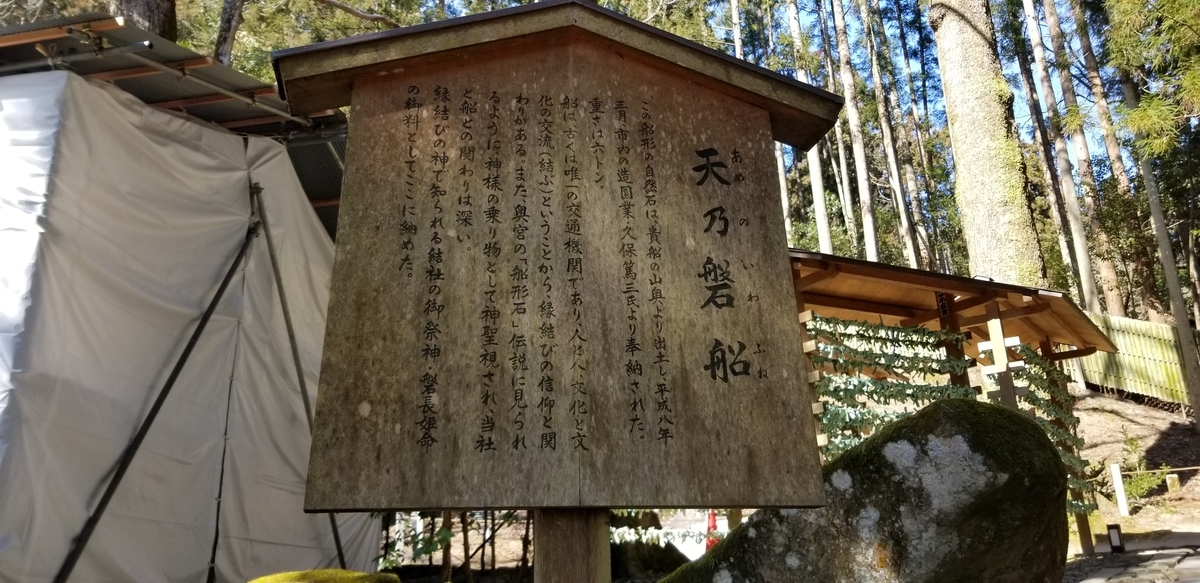 天乃磐船
あめのいわふね
この船形の自然石は、貴船の山奥より出土し平成八年
三月市内の造園業・久保篤三氏より奉納された。
重さは六トン。
船は古くは唯一の交通機関であり、人と人、文化と文
化の交流（結ぶ）ということから、縁結びの信仰と関
わりがある。また、奥宮の「船形石」伝説に見られ
るように神様の乗り物として神聖視され、当社
と船との関わりは深い。
縁結びの神で知られる結社の御祭神・磐長姫命
の御料としてここに納めた。